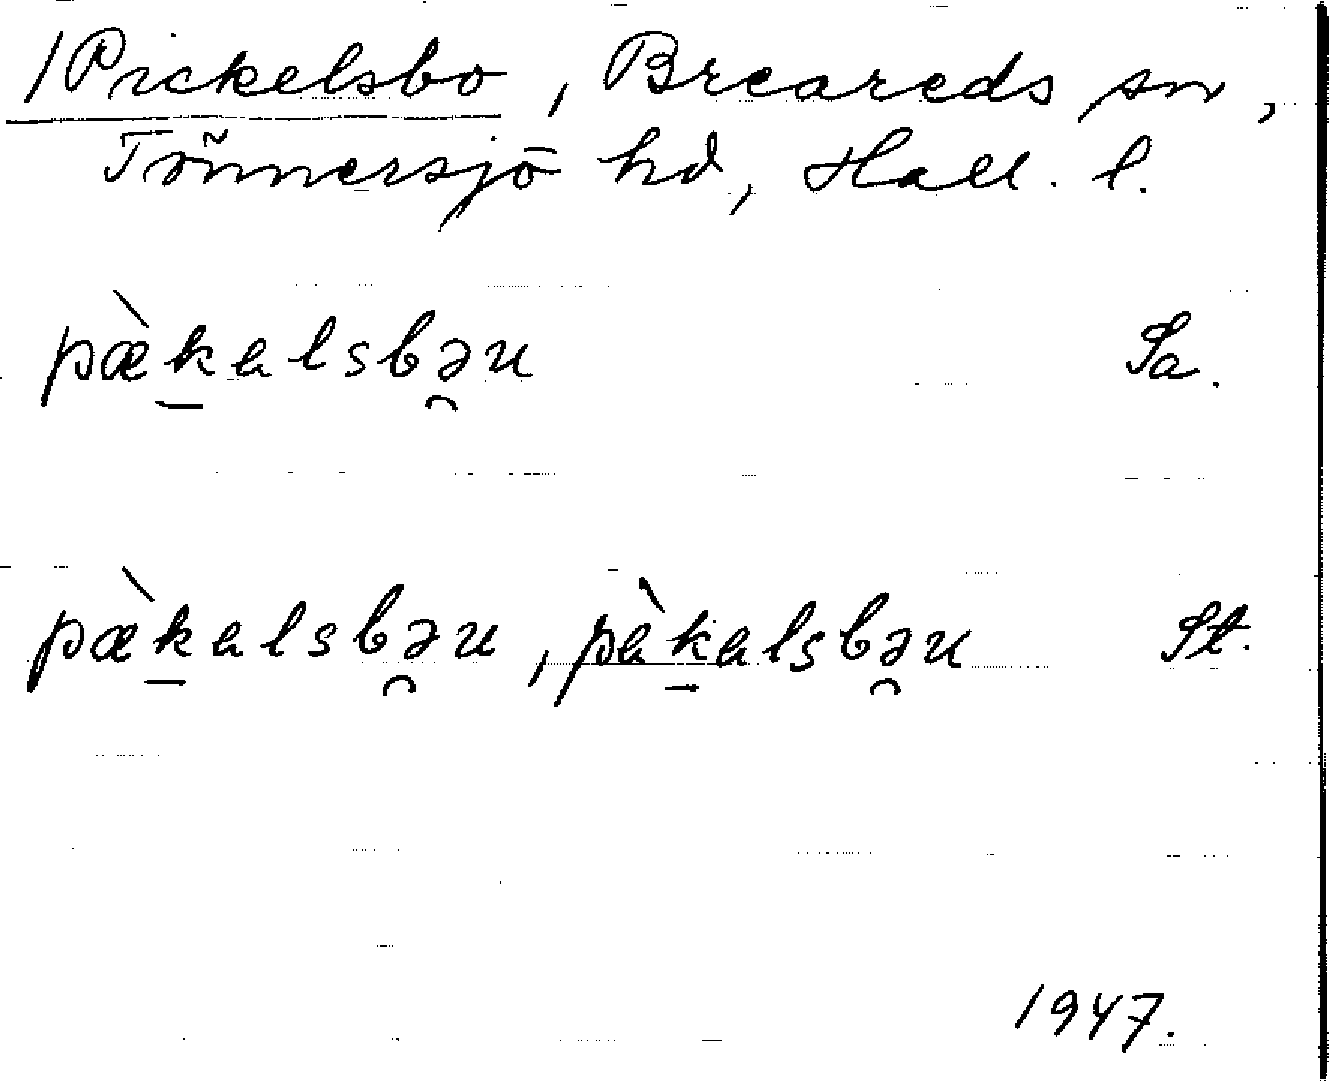 /Pickelsbo, Breareds sn,
Tönnersjö hd, Hall. l.
pæ̀k̠ɐlsbə̯u Sa.
pæ̀k̠ɐlsbə̯u, pɐ̀k̠ɐlsbə̯u St.
1947.